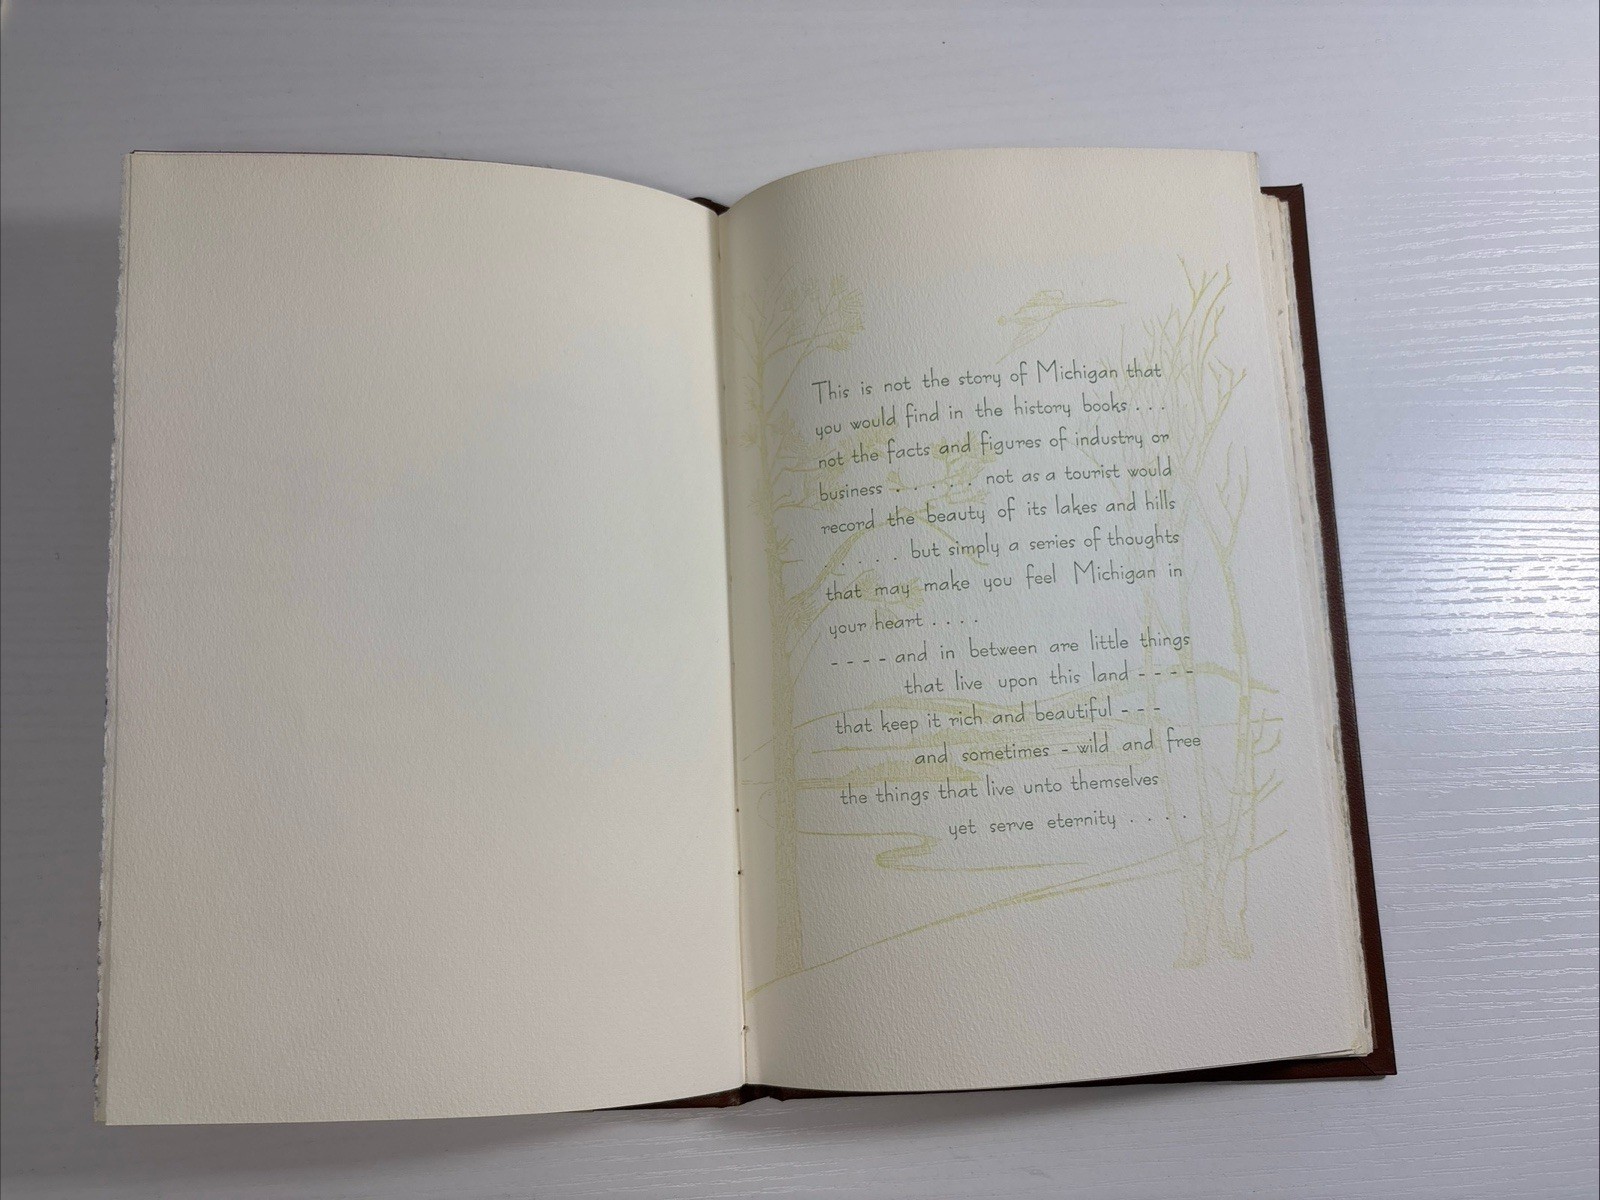 This is not the story of Michigan that
you would find in the history books . . .
not the facts and figures of industry or
business . . . . . not as a tourist would
record the beauty of its lakes and hills
. . . . but simply a series of thoughts
that may make you feel Michigan in
your heart . . . .
- - - - and in between are little things
that live upon this land - - - -
that keep it rich and beautiful - - -
and sometimes - wild and free
the things that live unto themselves
yet serve eternity . . . .